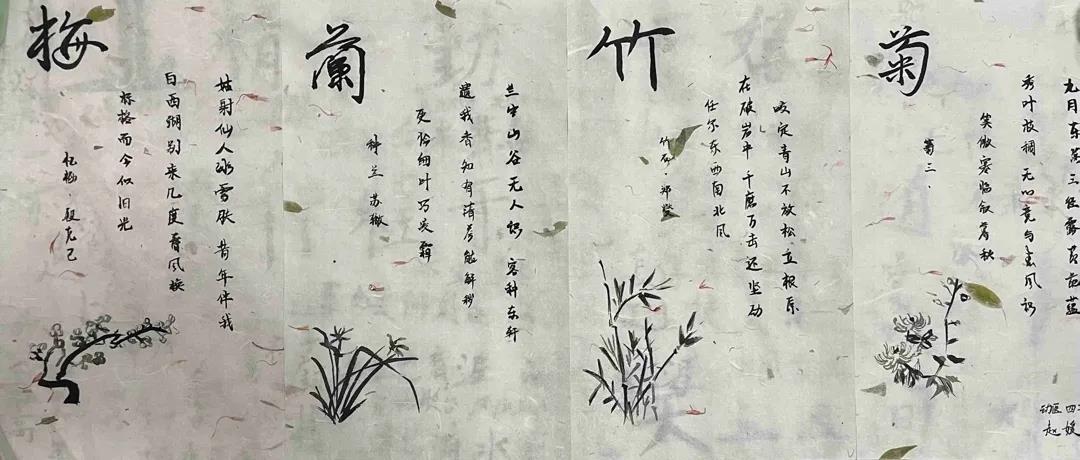 梅
姑射仙人冰雪肤 昔年伴我
西湖别来几度春风换
标格而今似旧无
忆梅·段克己
蘭
兰生山谷无人识 客种东轩
遗我香知有清芬能解秽
更怜细叶巧凌霜
种兰 苏辙
竹
咬定青山不放松立根原
在破岩中千磨万击还坚劲
任尔东西南北风
竹石·郑燮
菊
九月东 三径露
秀叶 稠 无心竞与春风识
笑傲寒临叙暮秋
菊三.
动医四
赵媛